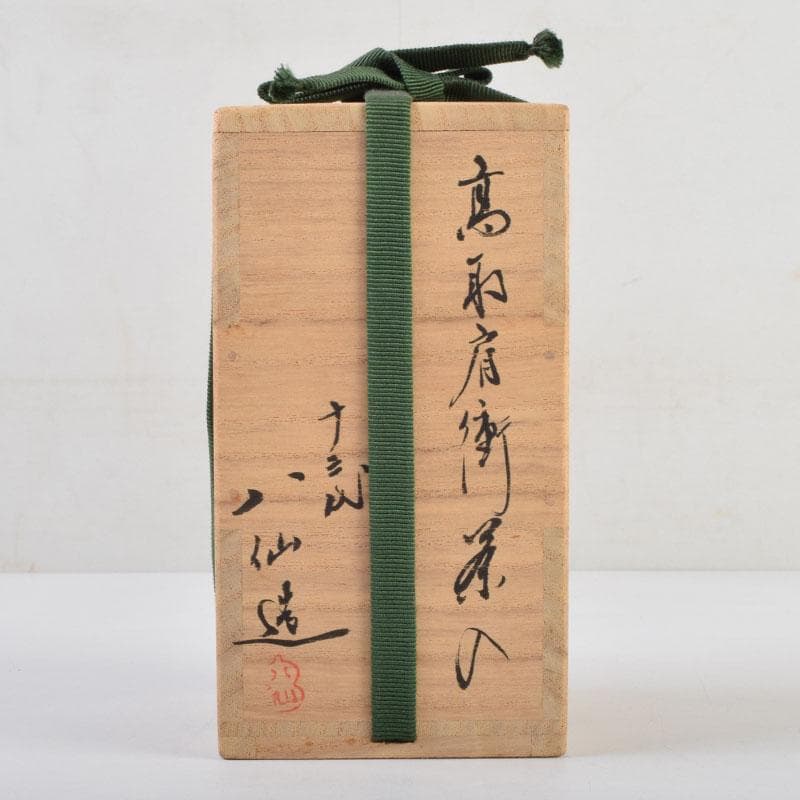 高取肩衝茶入
十三代
八仙造
八仙